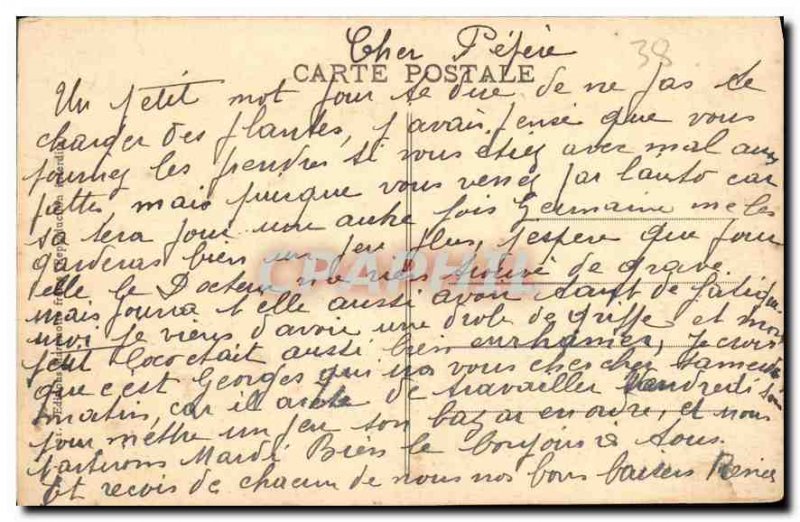 Cher Pépère
38
CARTE POSTALE
Un petit mot pour te dire de ne pas te
charger des plantes, j'avais pensé que vous
pourriez les prendre si vous étiez avec mal aux
pattes mais puisque vous venez par l'auto car
sa sera pour une autre fois Germaine me les
garderas bien un peu plus, j'espère que pour
elle le Docteur n'a rien trouvé de grave
mais pourra t'elle aussi avoir tant de fatigue
moi je viens d'avoir une drole de griffe et mon
petit Coco était aussi bien enrhumer, je crois
que c'est Georges qui ira vous chercher samedi
matin, car il arrête de travailler Vendredi soir
pour mettre un peu son bazar en ordre, et nous
partirons Mardi Bien le bonjour à tous.
Et reçois de chacun de nous nos bons baisers Renée
CRAPHIL
Reproduction interdite